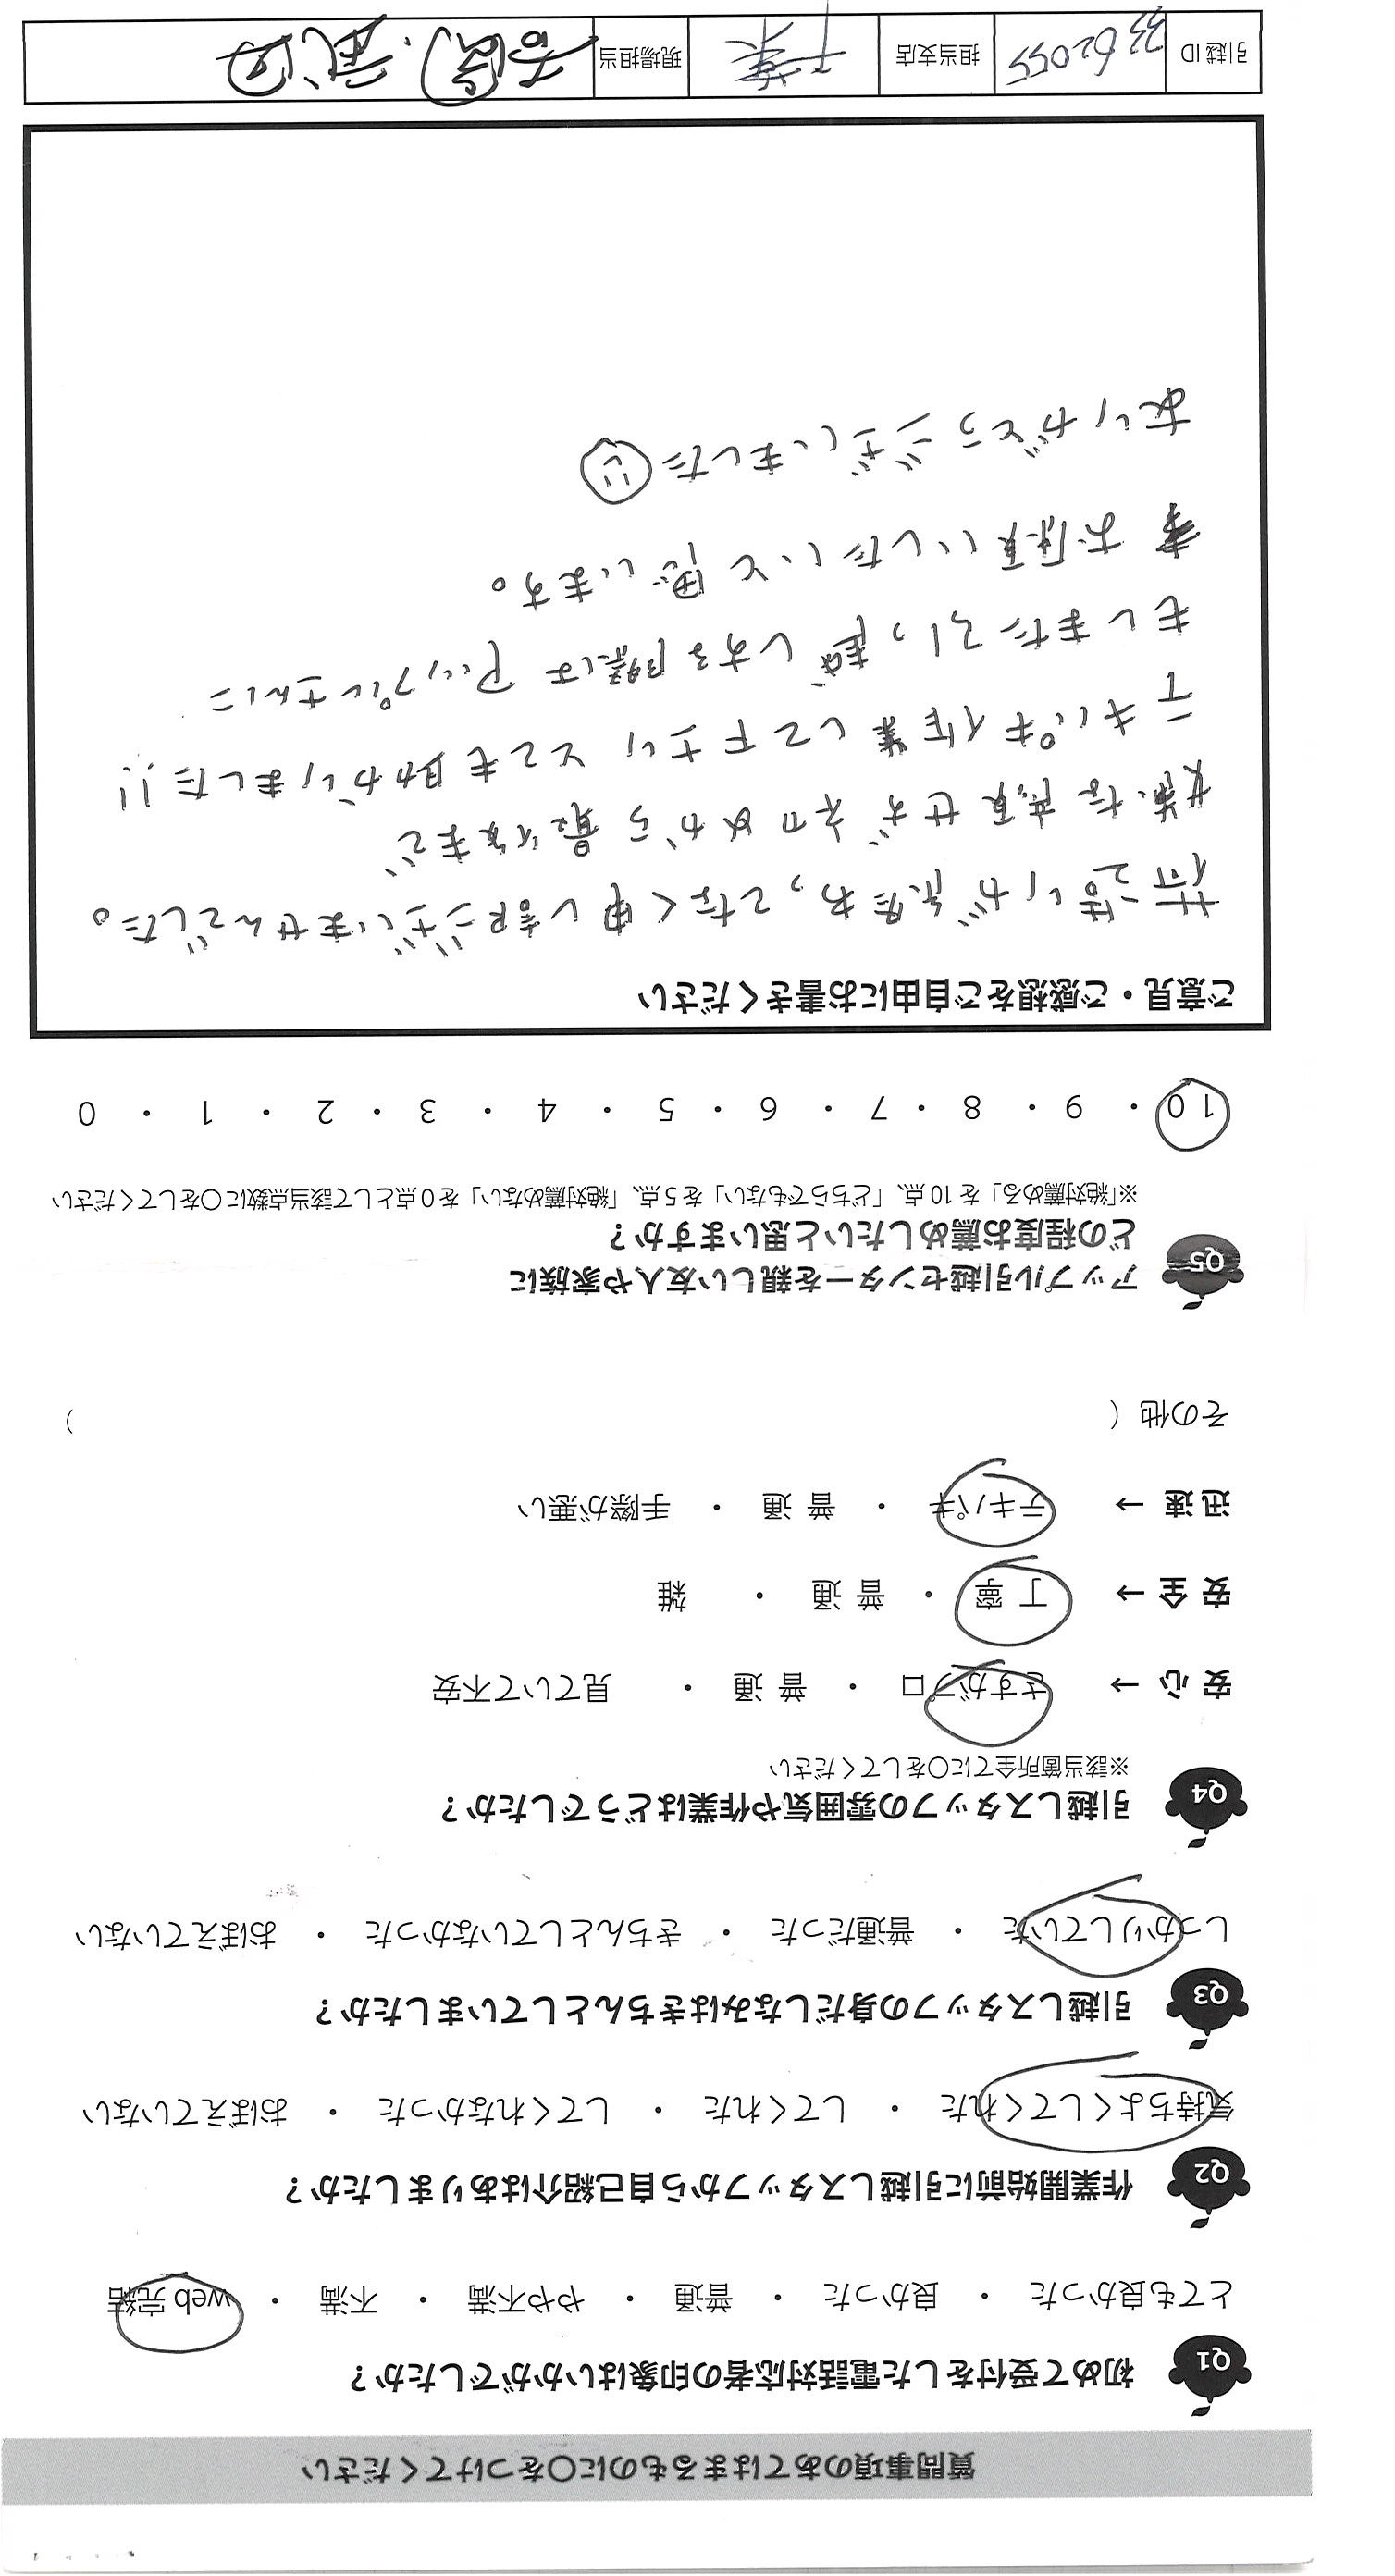 質問事項のあてはまるものに〇をつけてください
Q1 初めて受付をした電話対応者の印象はいかがでしたか？
とても良かった ・ 良かった ・ 普通 ・ やや不満 ・ 不満 ・ web 完結
Q2 作業開始前に引越しスタッフから自己紹介はありましたか？
気持ちよくしてくれた ・ してくれた ・ してくれなかった ・ おぼえていない
Q3 引越しスタッフの身だしなみはきちんとしていましたか？
しっかりしていた ・ 普通だった ・ きちんとしていなかった ・ おぼえていない
Q4 引越しスタッフの雰囲気や作業はどうでしたか？
※該当箇所全てに〇をしてください
安 心 → さすがプロ ・ 普 通 ・ 見ていて不安
安 全 → 丁 寧 ・ 普 通 ・ 雑
迅 速 → テキパキ ・ 普 通 ・ 手際が悪い
その他（ ）
Q5 アップル引越センターを親しい友人や家族に
どの程度お薦めしたいと思いますか？
※「絶対薦める」を 10 点、「どちらでもない」を 5 点、「絶対薦めない」を 0 点として該当点数に〇をしてください
10 ・ 9 ・ 8 ・ 7 ・ 6 ・ 5 ・ 4 ・ 3 ・ 2 ・ 1 ・ 0
ご意見・ご感想をご自由にお書きください
荷造りが終わってなく申し訳ございませんでした。
嫌な顔せず初めから最後まで
テキパキ作業して下さりとても助かりました!!
もしまた引っ越しする際はアップルさんに
お願いしたいと思います。
ありがとうございました
引越 ID 3362055 担当支店 千葉 現場担当